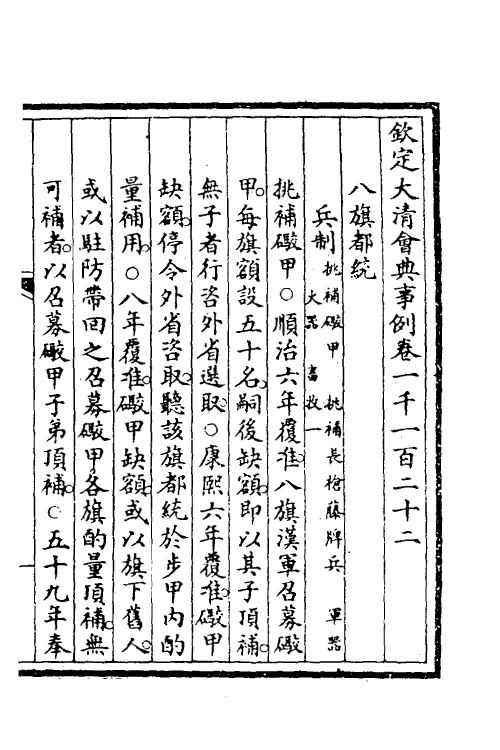 欽定大清會典事例卷一千一百二十二
八旗都統
兵制 挑補礮甲 挑補長槍藤牌兵 軍器 火器 畜牧一
挑補礮甲○順治六年覆准。八旗漢軍召募礮
甲。每旗額設五十名。嗣後缺額。即以其子頂補。
無子者行咨外省選取。○康熙六年覆准。礮甲
缺額。停令外省咨取。聽該旗都統於步甲內酌
量補用。○八年覆准。礮甲缺額。或以旗下舊人。
或以駐防帶回之召募礮甲。各旗酌量頂補。無
可補者。以召募礮甲子弟頂補。○五十九年奉